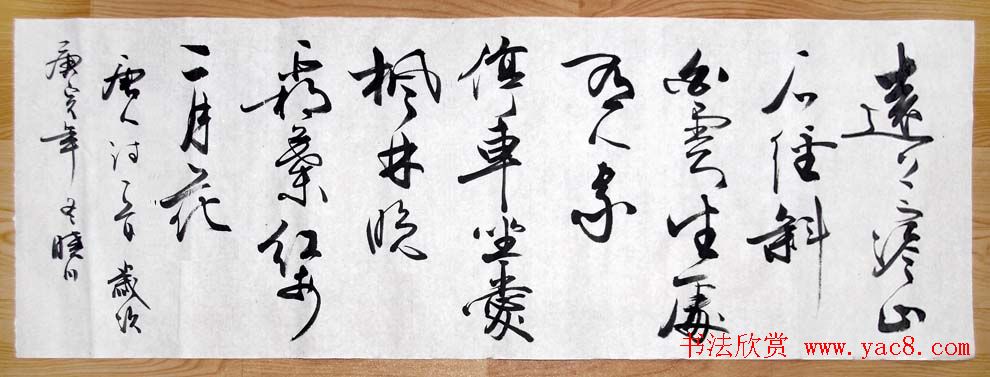 遠上寒山
石徑斜
白雲生處
有人家
停車坐愛
楓林晚
霜葉紅於
二月花
唐人詩一首 歲次
庚寅年 冬 曉川
书法欣赏 www.yac8.com